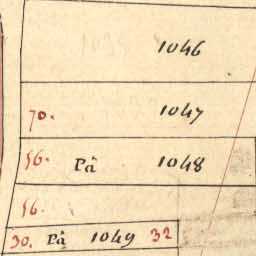 1046
70. 1047
56. Pâ 1048
56.
30. Pâ 1049 32